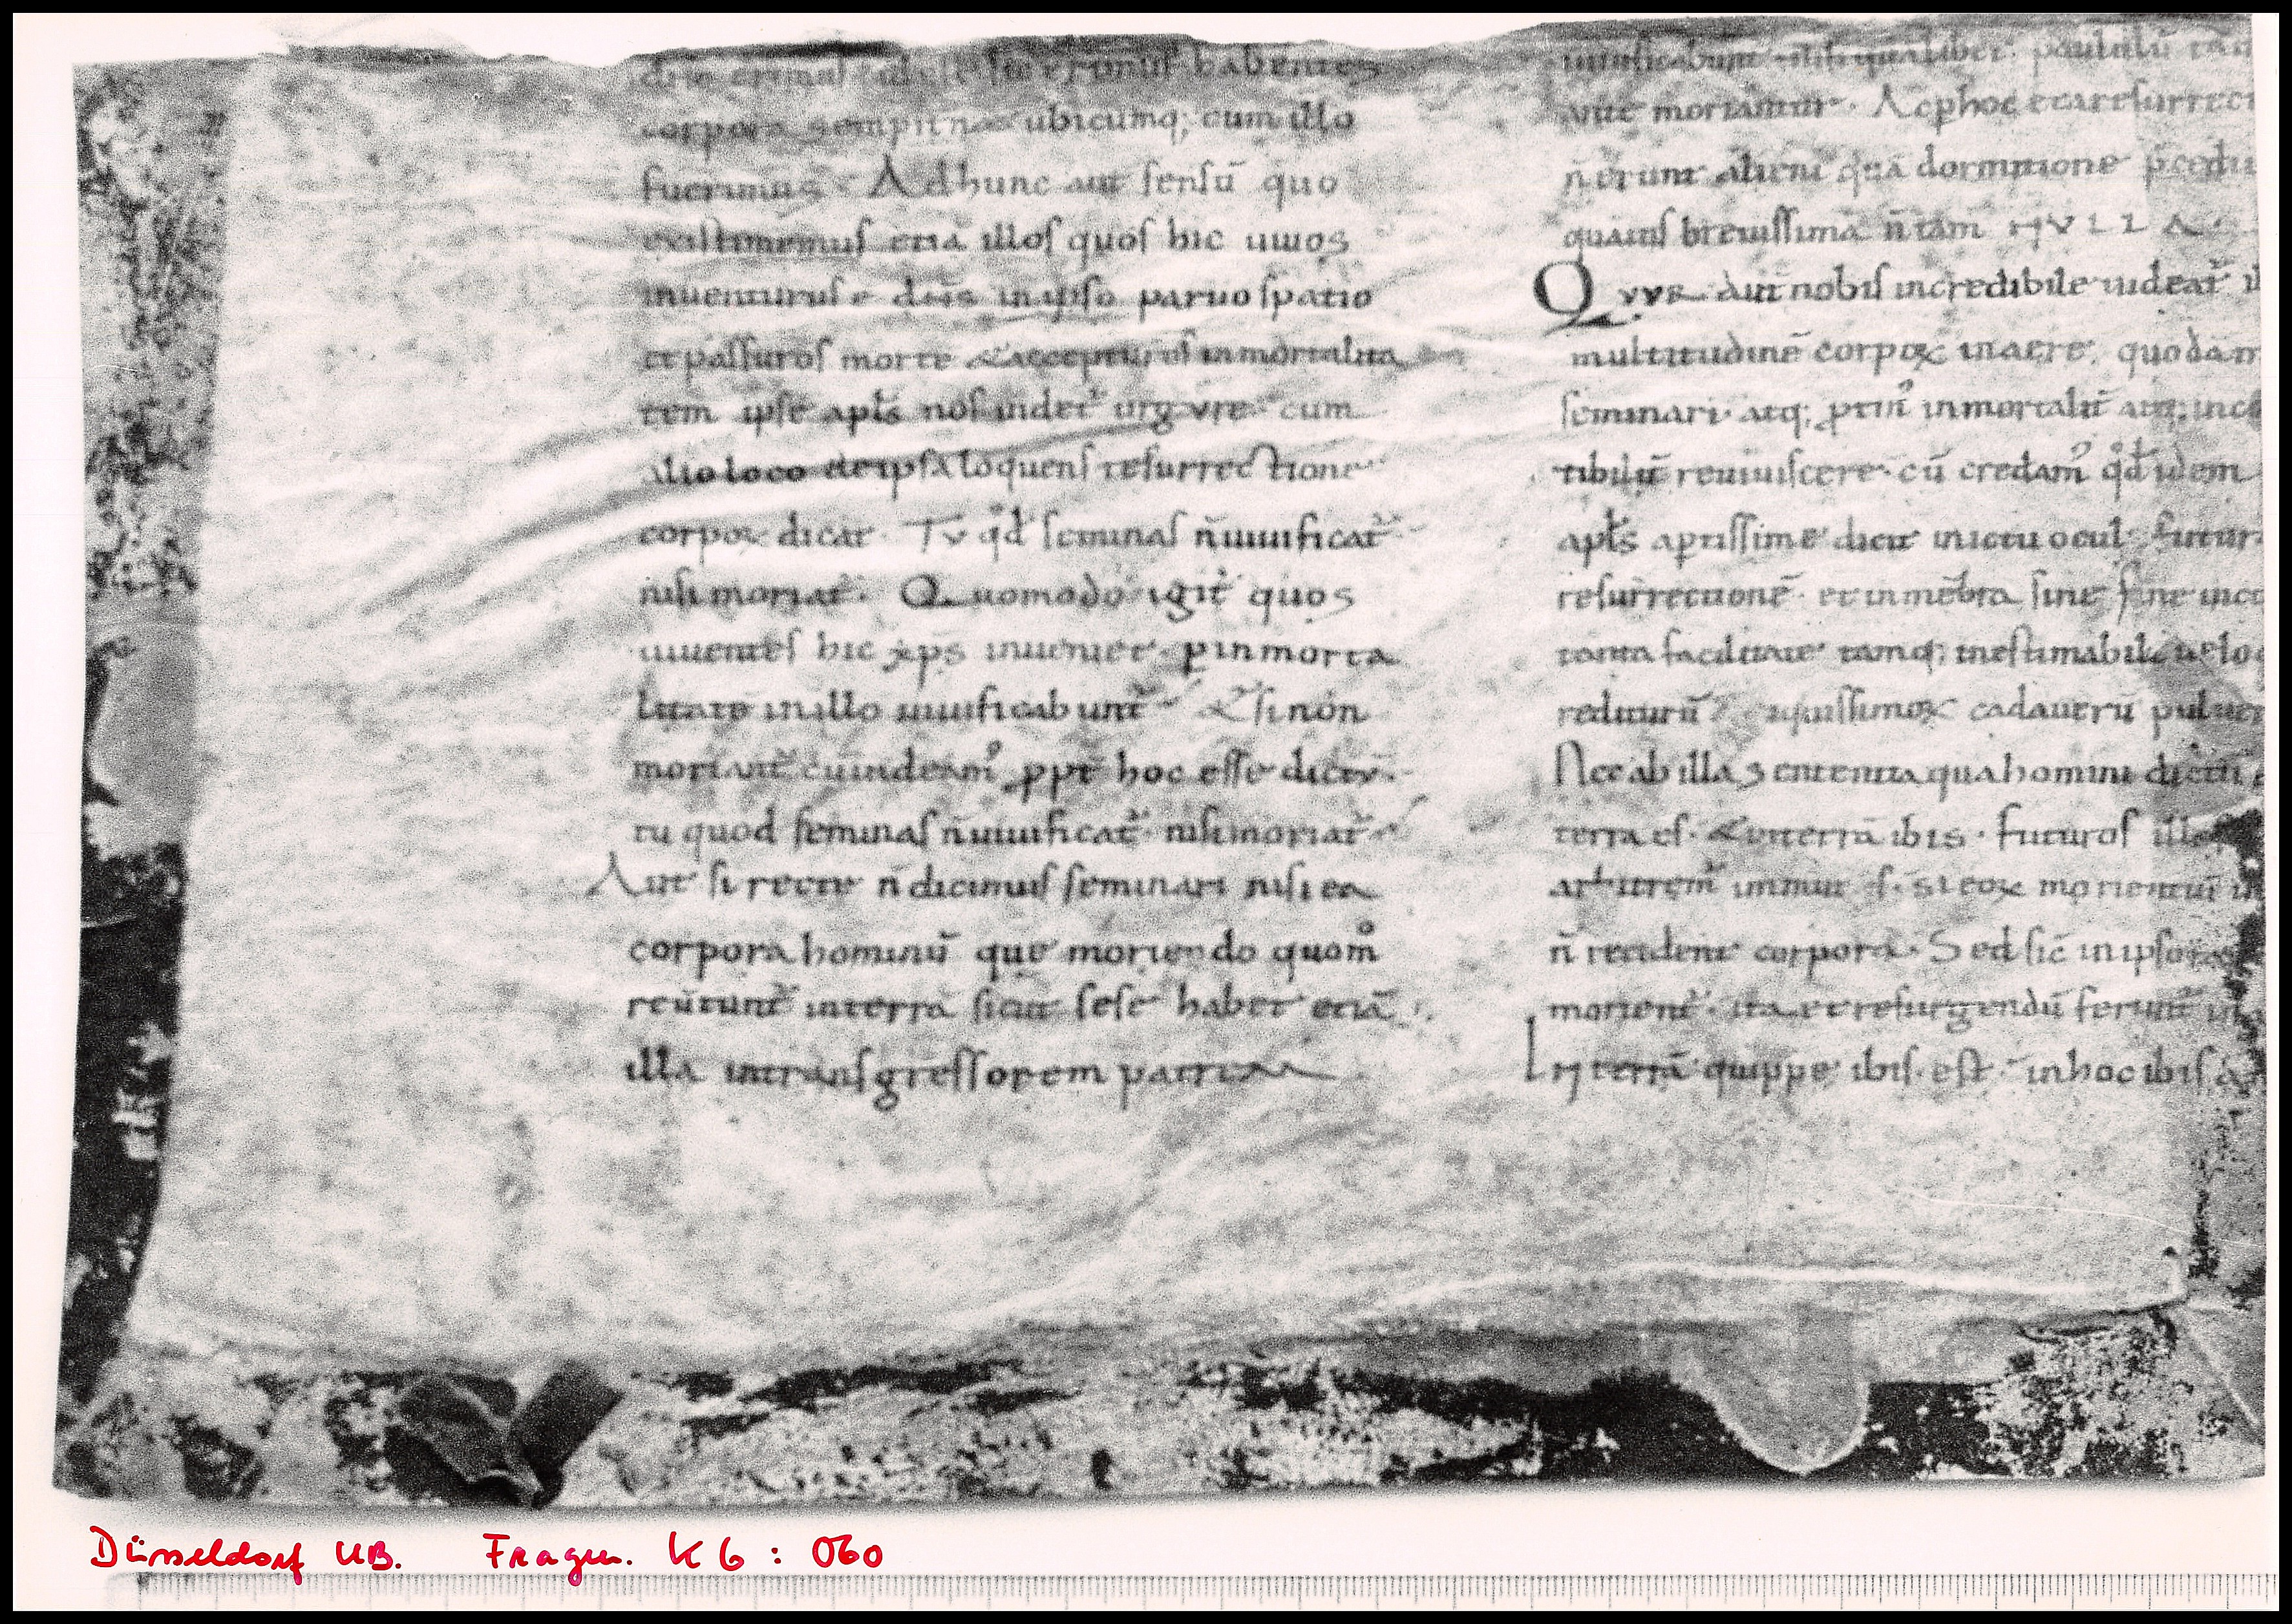 erimus habentes
corpora sempitna ubicumq; cum illo
fuerimus. Ad hunc aut sensū quo
existimemus etiā illos quos hic uiuos
inuenturus ē dn̄s in ipso paruo spatio
et passuros morte & accepturos inmortalita
tem ipse apl̄s nos uidet̄ urgere cum
alio loco de ipsa loquens resurrectione
corpoꝝ dicat. Tu qd̄ seminas n̄ uiuificat̄
nisi moriat̄. Quomodo igit̄ quos
uiuentes hic xp̄s inueniet p inmorta
litate in illo uiuificabunt̄ & si non
moriant̄ cū uideam̊ ppt̄ hoc esse dictū.
tu quod seminas n̄ uiuificat̄ nisi moriat̄
Aut si recte n̄ dicimus seminari nisi ea
corpora hominū que moriendo quom̊
reūtunt̄ in terrā sicut sese habet etiā
illa in transgressorem patrem
uiuificabunt nisi quālibet paululū tam
ante moriantur. Ac p hoc et a resurrect
n̄ erunt alieni quā dormitione p̄cedi
quāuis breuissima n̄ tam NULLA.
Que aut̄ nobis incredibile uideat̄ il
multitudinē corpoꝝ in aere quodam
seminari. atq; inmortalit̄ atq; inco
tibilit̄ reuiuiscere. cū credam̊ qd̄ idem
apl̄s aptissime dicit in ictu ocul futur
resurrectionē. et in mēbra sine fine
tanta facilitate tamq; inestimabili ueloc
rediturū cadauerū puluer
Nec ab illa sententia qua homini dictū
terra es. & in terrā ibis. futuros illos
arbitrem̊ immunes. si eoꝝ morientiū in
n̄ recident corpora. Sed sic̄ in ipso
morient̄. ita et resurgendū ferunt̄ in
In terrā quippe ibis. est in hoc ibis a
Düsseldorf UB. Fragm. K 6 : 060